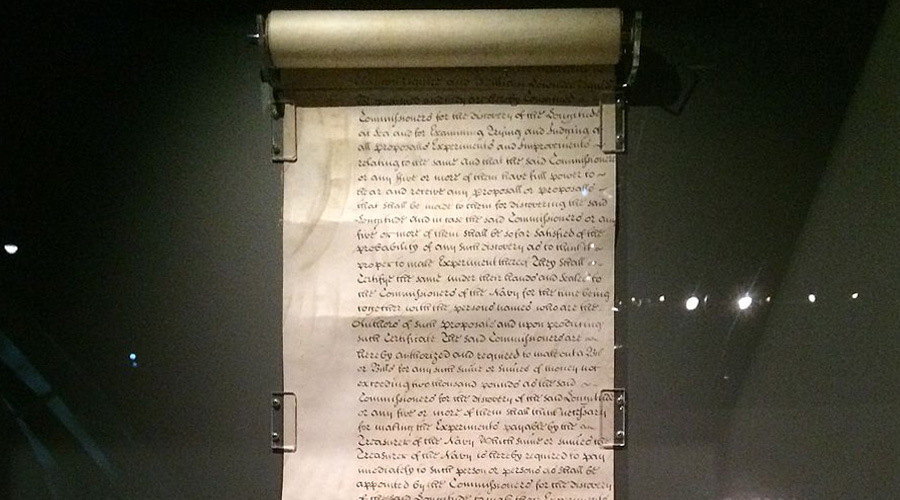 Commissioners for the discovery of the Longitude
at Sea and for Examining Trying and Judging of
all proposalls Experiments and Improvements
relating to the same And that the said Commissioners
or any five or more of them have full power to
hear and receive any proposall or proposalls
that shall be made to them for discovering the said
Longitude And in case the said Commissioners or any
five or more of them shall be so far satisfied of the
probability of any such discovery as to think it
proper to make Experiment thereof They shall
Certifye the same under their hands and seales to
the Commissioners of the Navy for the time being
together with the persons names who are the
Authors of such proposals and upon producing
such Certificate The said Commissioners are
hereby authorized and required to make out a Bill
or Bills for any such summe or summes of money not
exceeding two thousand pounds as the said
Commissioners for the discovery of the said Longitude
or any five or more of them shall think necessary
for making the Experiments payable by the
Treasurer of the Navy Which summe or summes the
Treasurer of the Navy is hereby required to pay
immediately to such person or persons as shall be
appointed by the Commissioners for the discovery
of the said Longitude to make those Experiments